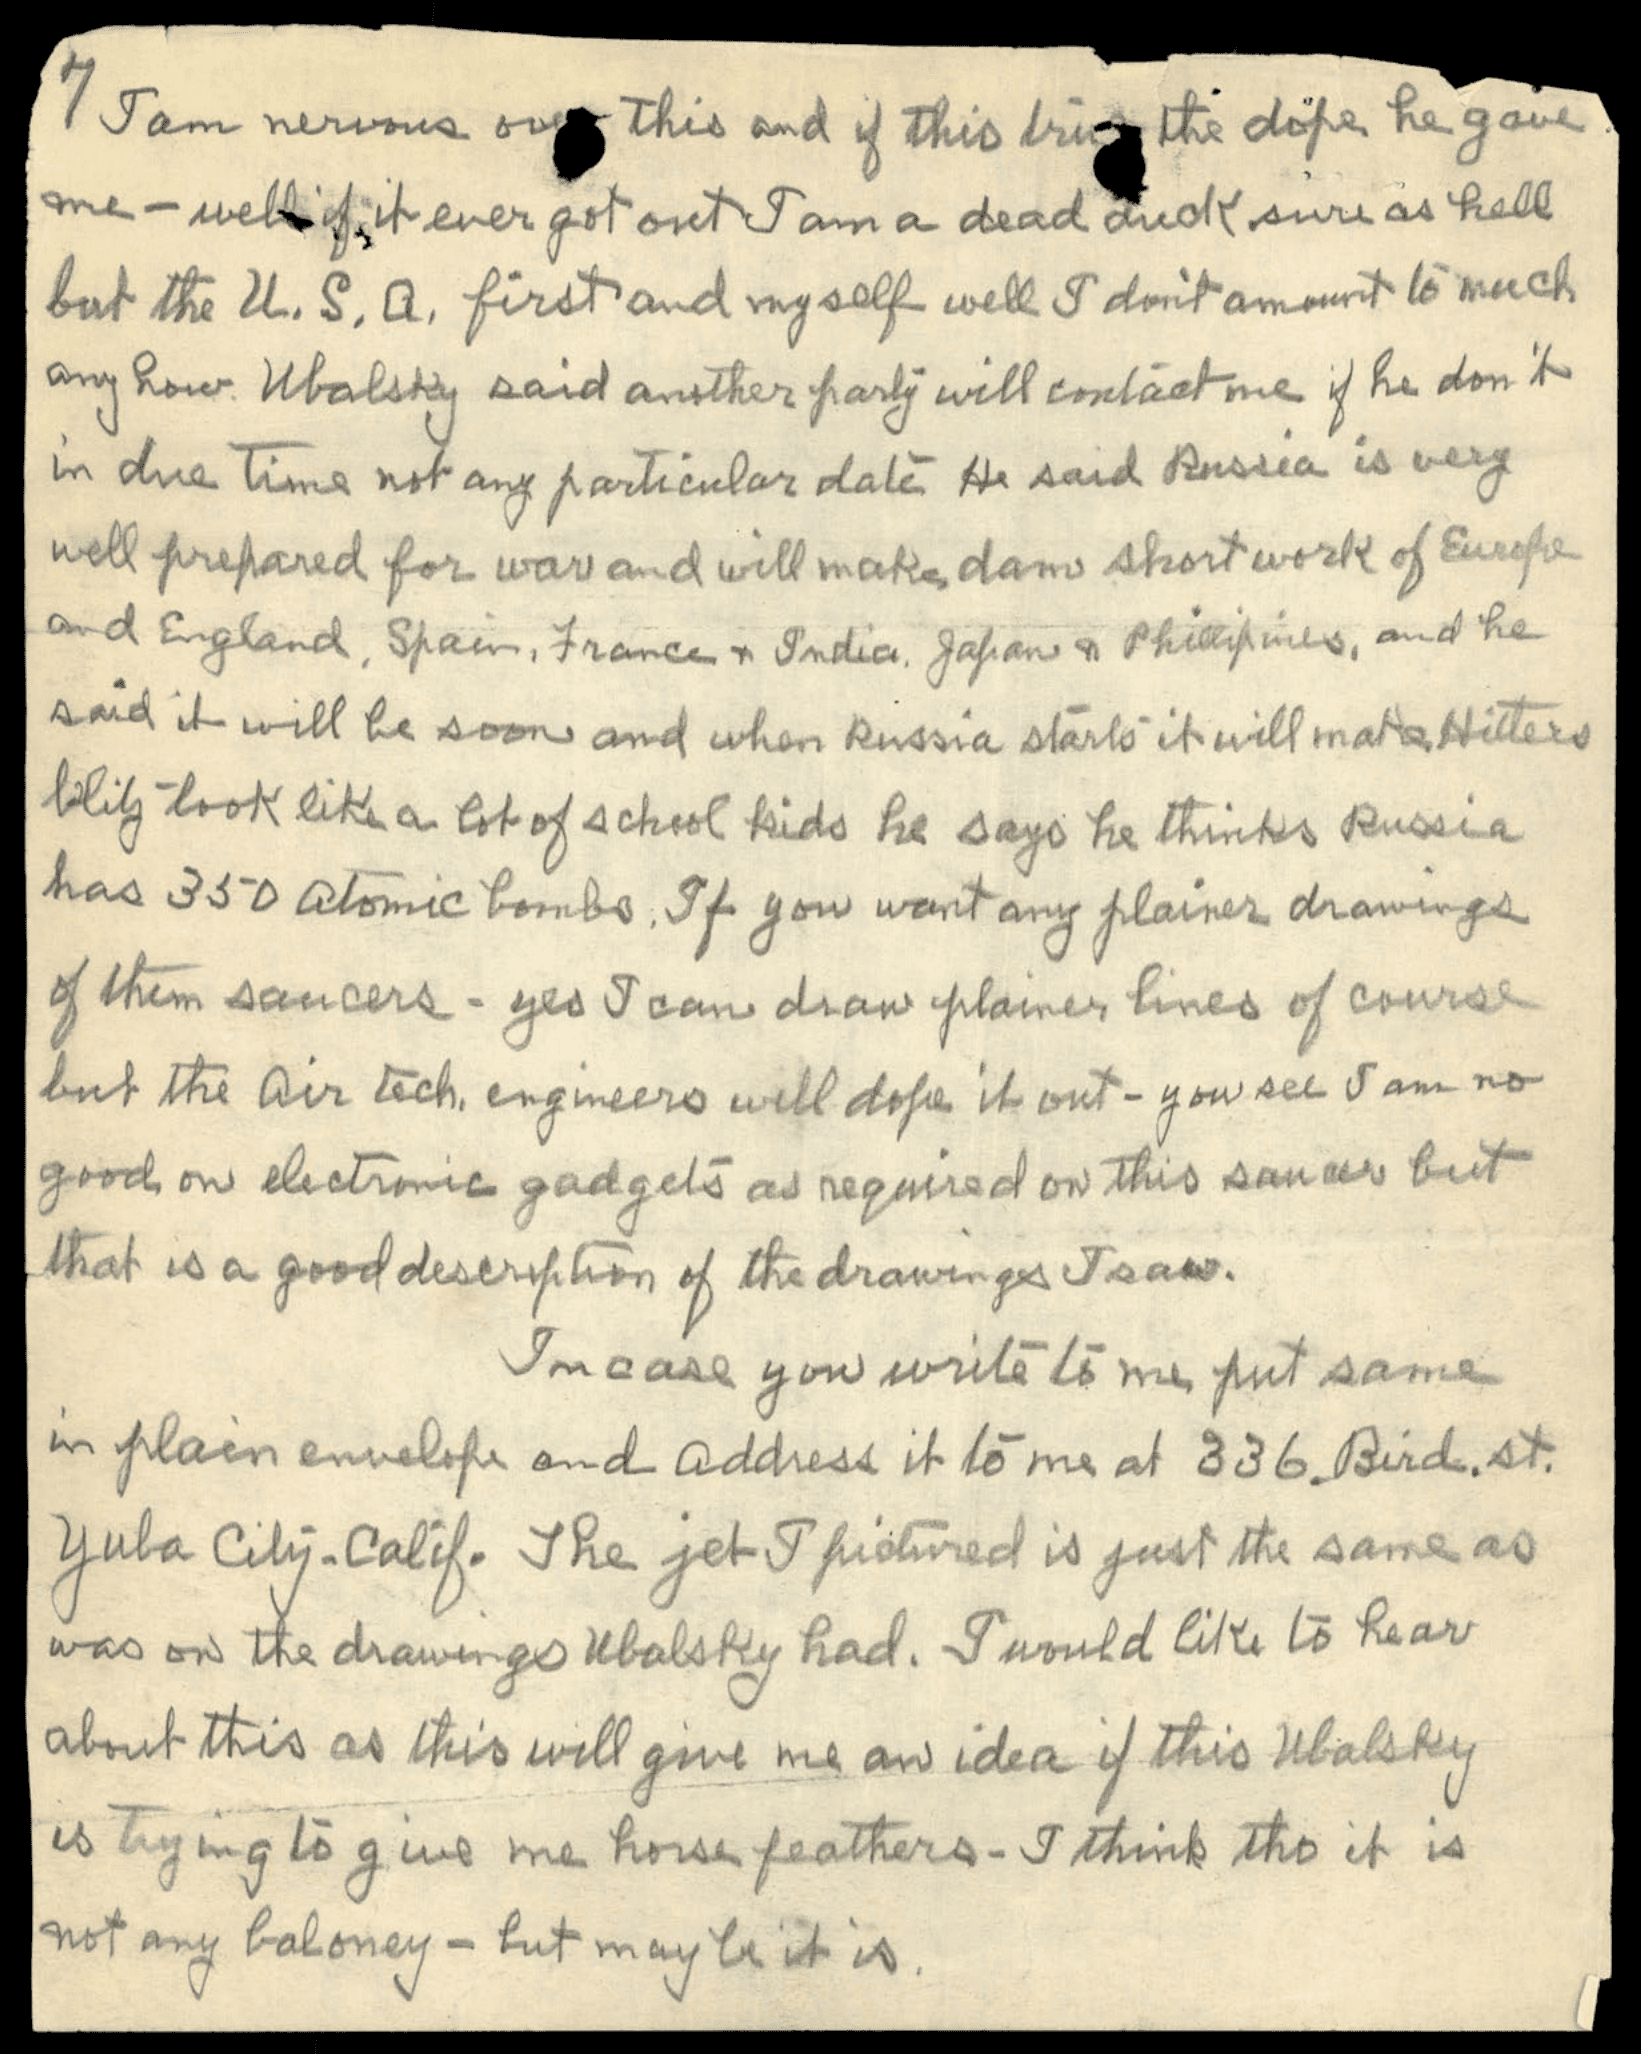 7 I am nervous over this and if this true the dope he gave
me - well if it ever got out I am a dead duck sure as hell
but the U. S. A. first and myself well I don't amount to much
any how. Ubalsky said another party will contact me if he don't
in due time not any particular date He said Russia is very
well prepared for war and will make dam short work of Europe
and England, Spain, France & India. Japan & Phillipines, and he
said it will be soon and when Russia starts it will make Hitlers
blitz look like a lot of school kids he says he thinks Russia
has 350 atomic bombs. If you want any plainer drawings
of them saucers - yes I can draw plainer lines of course
but the Air tech. engineers will dope it out - you see I am no
good on electronic gadgets as required on this saucer but
that is a good description of the drawings I saw.
In case you write to me put same
in plain envelope and address it to me at 336 Bird. st.
Yuba City - Calif. The jet I pictured is just the same as
was on the drawings Ubalsky had. I would like to hear
about this as this will give me an idea if this Ubalsky
is trying to give me horse feathers - I think tho it is
not any baloney - but may be it is.